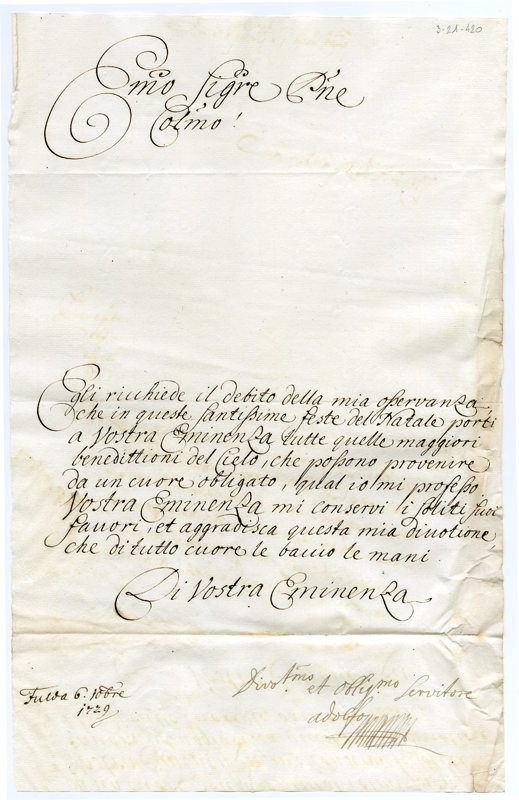 3-21-420
Emo Sigre Pne
Colmo!
Egli ricchiede il debito della mia osservanza,
che in queste santissime feste del Natale porti
a Vostra Eminenza tutte quelle maggiori
benedittioni del Cielo, che possono provenire
da un cuore obligato, qual io mi professo
Vostra Eminenza mi conservi i soliti suoi
favori, et aggradisca questa mia divotione,
che di tutto cuore le baccio le mani.
Di Vostra Eminenza
Fulda 6. Xobre
1729
Divotmo et obligmo Servitore
adolfo